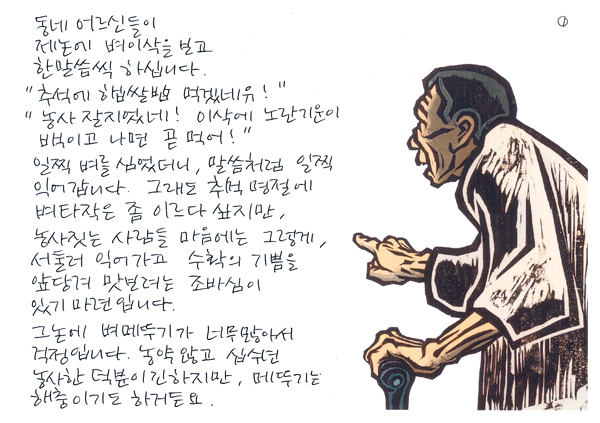 ①
동네 어르신들이
제논에 벼이삭을 보고
한말씀씩 하십니다.
"추석에 햅쌀밥 먹겠네유!"
"농사 잘지었네! 이삭에 노란기운이
박이고 나면 곧 먹어!"
일찍 벼를 심었더니, 말씀처럼 일찍
익어갑니다. 그래도 추석 명절에
벼타작은 좀 이르다 싶지만,
농사짓는 사람들 마음에는 그렇게,
서둘러 익어가고 수확의 기쁨을
앞당겨 맛보려는 조바심이
있기 마련입니다.
그논에 벼메뚜기가 너무많아서
걱정입니다. 농약 않고
농사한 덕분이긴하지만, 메뚜기는
해충이기도 하거든요.